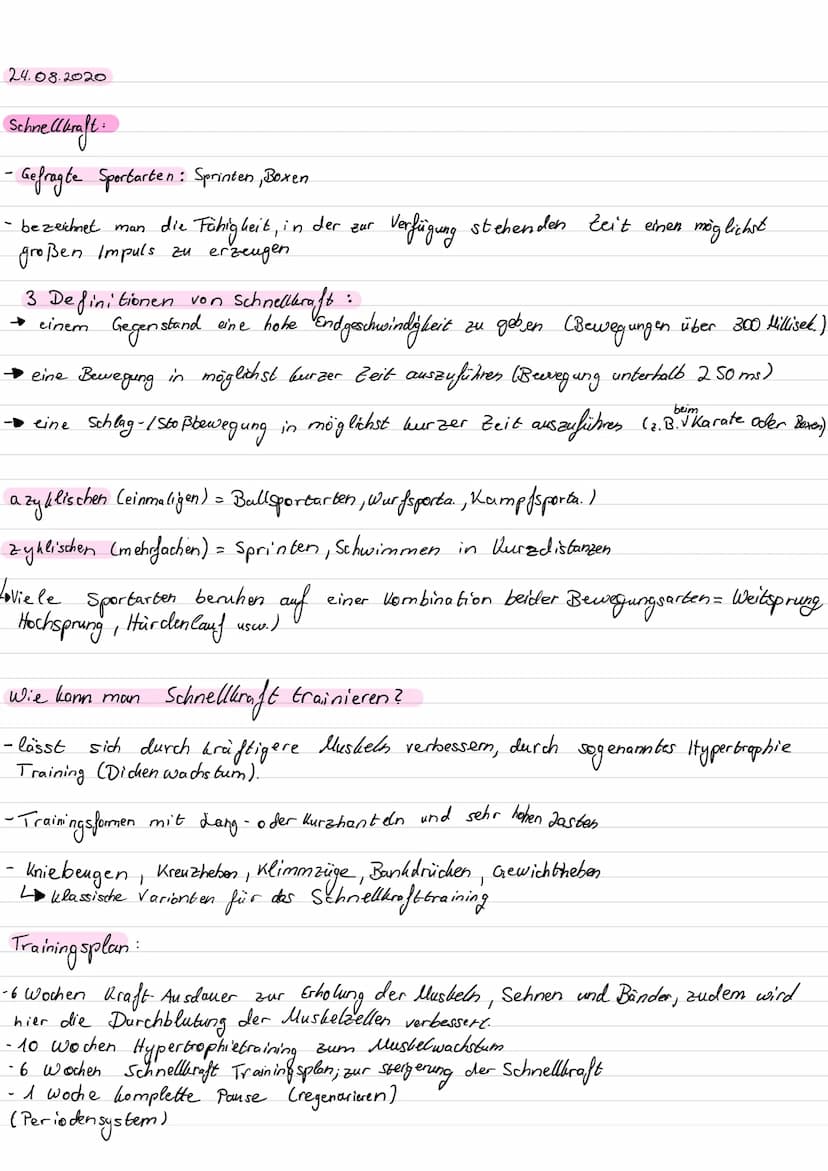 24.08.2020
Schnellkraft:
- Gefragte Sportarten: Sprinten, Boxen
- bezeichnet man die Fähigkeit, in der zur Verfügung stehenden Zeit einen möglichst
großen Impuls zu erzeugen
3 Definitionen von Schnellkraft:
→ einem Gegenstand eine hohe Endgeschwindigkeit zu geben (Bewegungen über 300 Millisek.)
→ eine Bewegung in möglichst kurzer Zeit auszuführen (Bewegung unterhalb 250 ms)
→ eine Schlag-/Stoßbewegung in möglichst kurzer Zeit auszuführen (z.B. beim Karate oder Boxen)
azyklischen (einmaligen) = Ballsportarten, Wurfsporta., Kampfsporta.)
zyklischen (mehrfachen) = Sprinten, Schwimmen in Kurzdistanzen
↳ Viele Sportarten beruhen auf einer Kombination beider Bewegungsarten = Weitsprung,
Hochsprung, Hürdenlauf usw.)
Wie kann man Schnellkraft trainieren?
- lässt sich durch kräftigere Muskeln verbessern, durch sogenanntes Hypertrophie
Training (Dickenwachstum).
- Trainingsformen mit Lang- oder Kurzhanteln und sehr hohen Lasten
- Kniebeugen, Kreuzheben, Klimmzüge, Bankdrücken, Gewichtheben
↳ klassische Varianten für das Schnellkrafttraining
Trainingsplan:
- 6 Wochen Kraft-Ausdauer zur Erholung der Muskeln, Sehnen und Bänder, zudem wird
hier die Durchblutung der Muskelzellen verbessert.
- 10 Wochen Hypertrophietraining zum Muskelwachstum
- 6 Wochen Schnellkraft Trainingsplan; zur steigerung der Schnellkraft
- 1 Woche komplette Pause (regenerieren)
(Periodensystem)